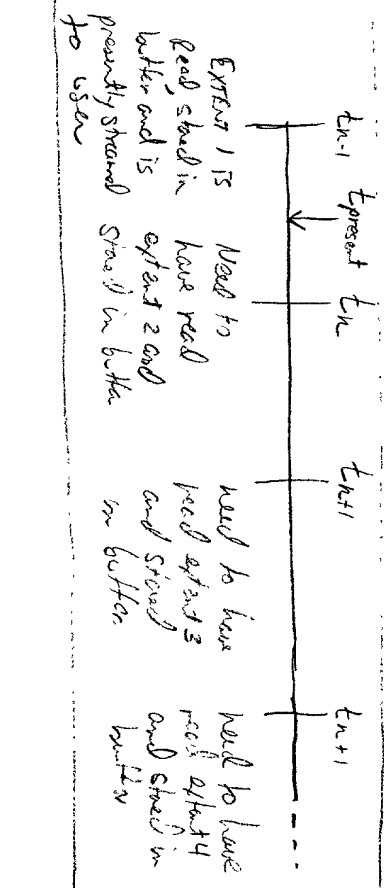 tn-1
tpresent
tn
tn+1
tn+1
Extent 1 is
read, stored in
buffer and is
presently streamed
to user
Need to
have read
extent 2 and
stored in buffer
need to have
read extent 3
and stored
in buffer
need to have
read extent 4
and stored in
buffer